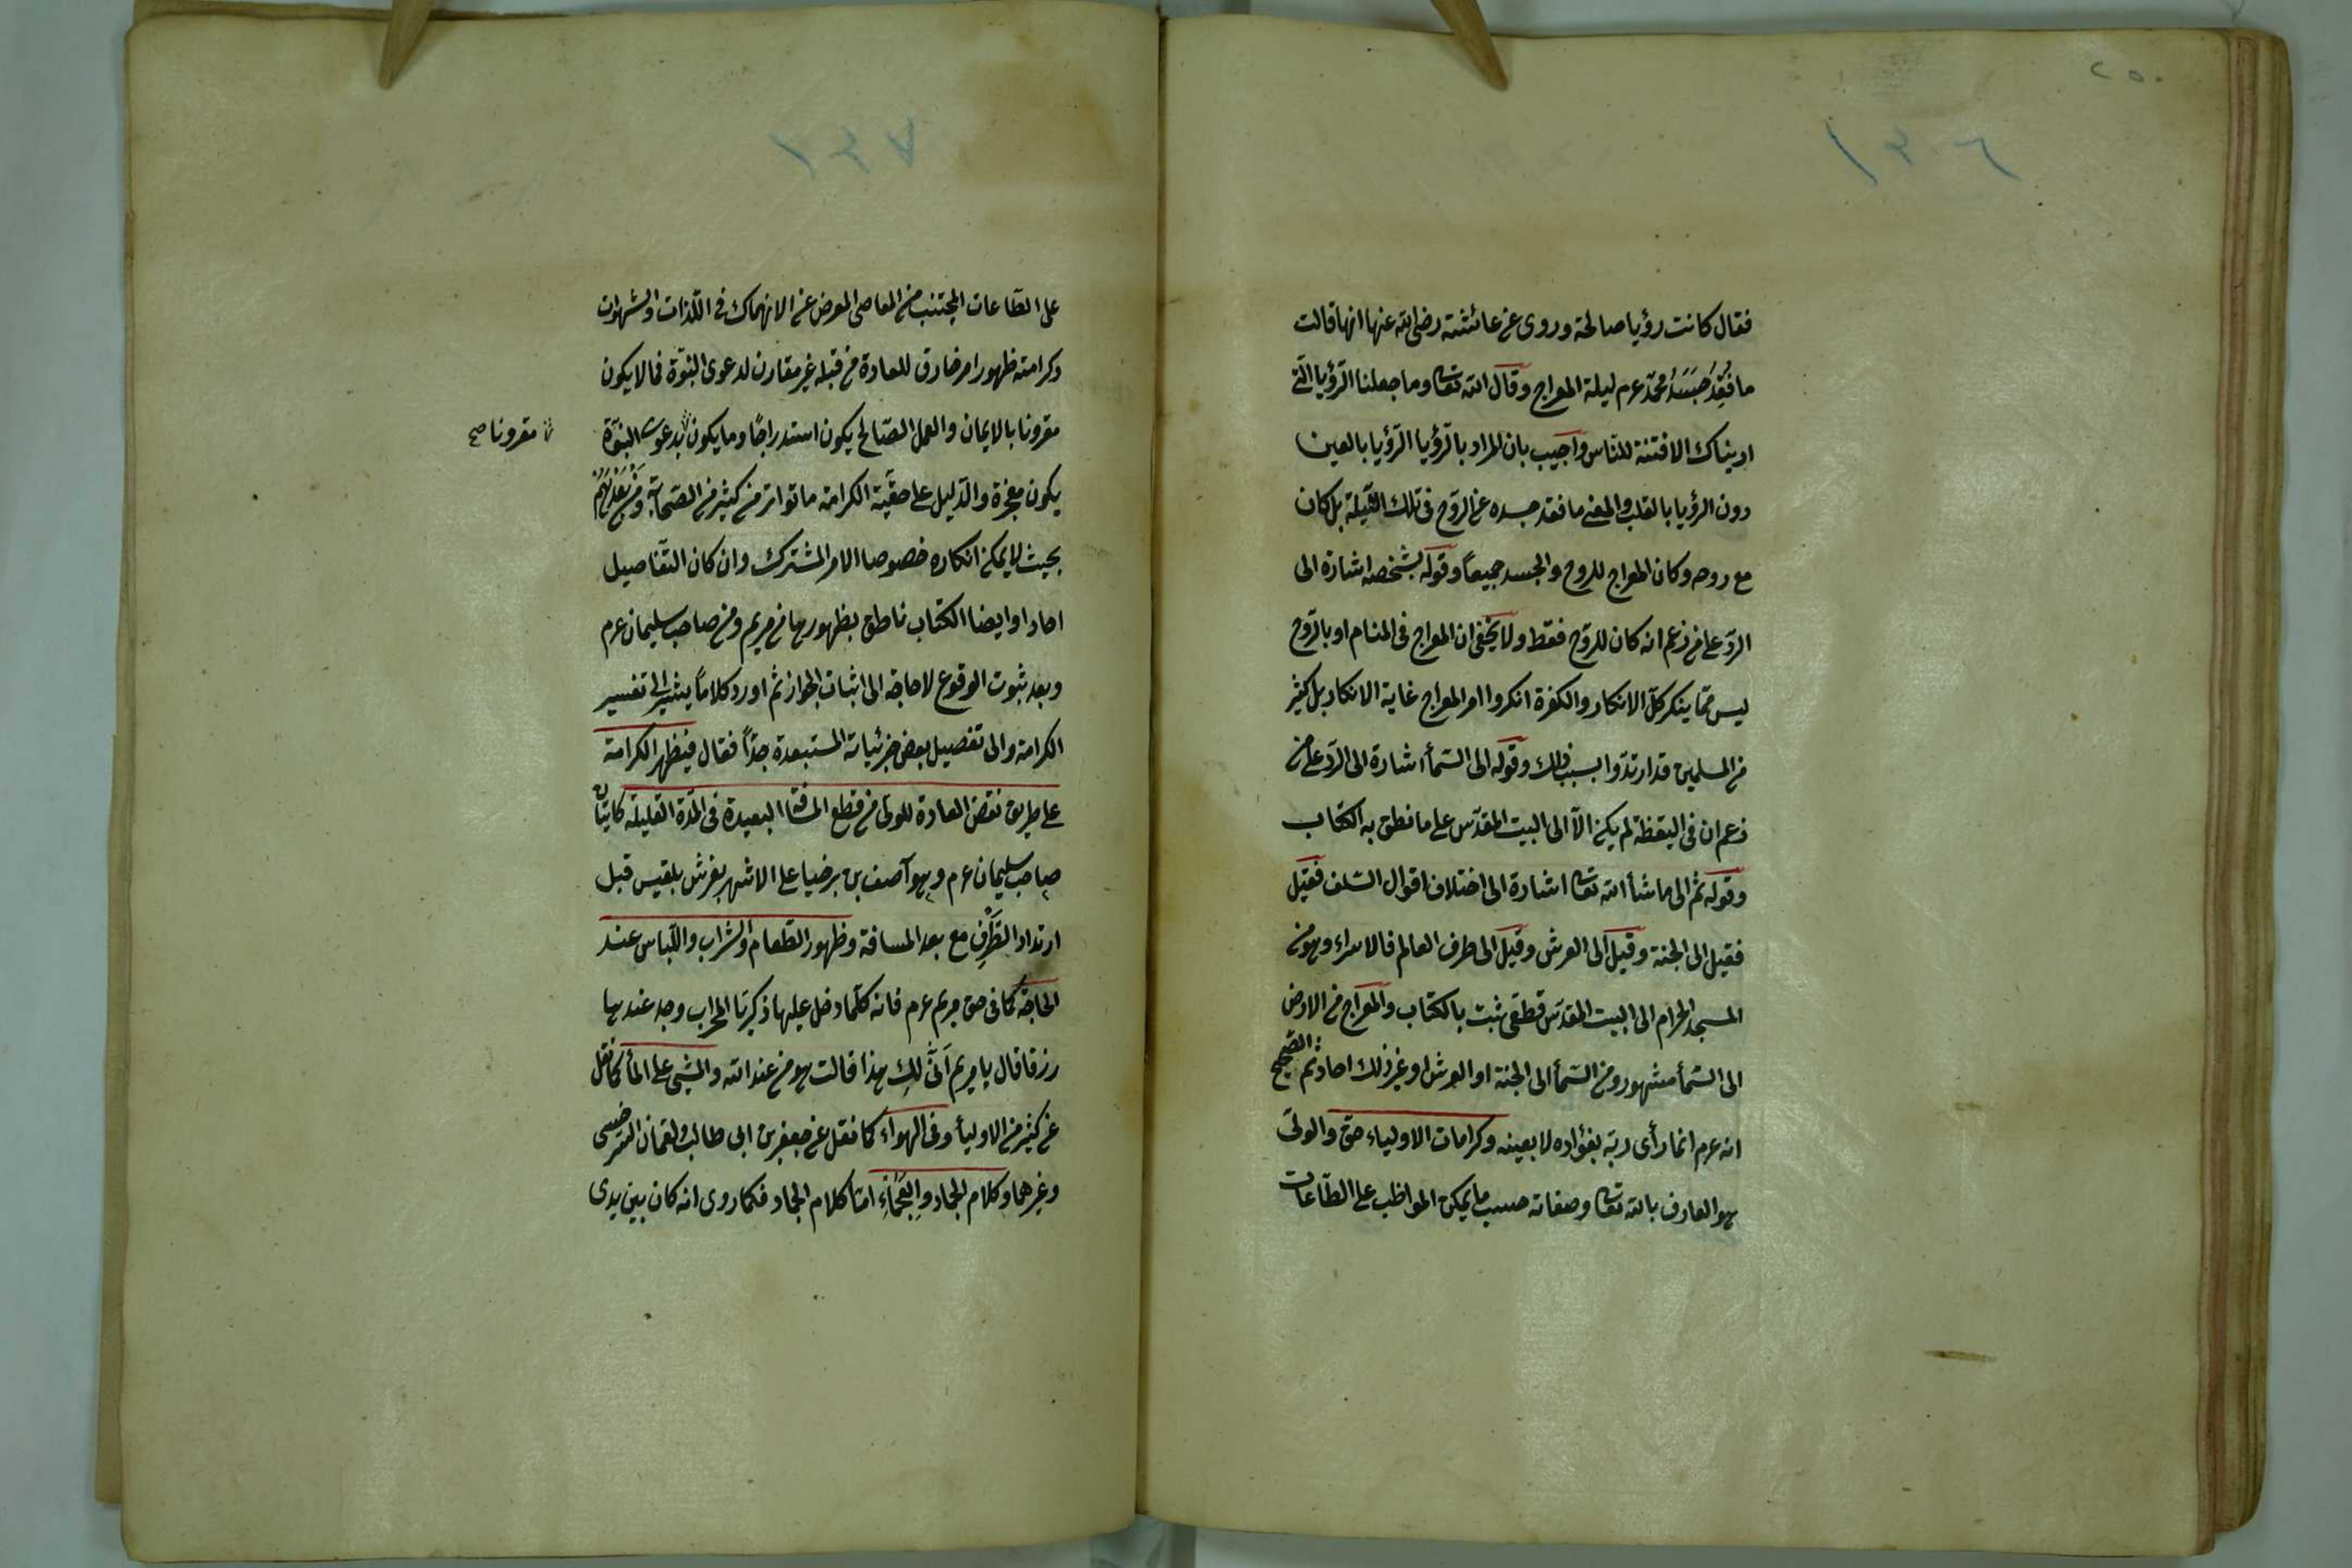 ٢٥٠
١٣٦
فقال كانت رؤيا صالحة وروى عن عائشة رضى الله عنها انها قالت
ما فُقِدَ جَسَدُ محمّد عم ليلة المعراج وقال الله تعا وما جعلنا الرّؤيا الّتى
اريناك الا فتنة للنّاس واجيب بان المراد بالرّؤيا الرّؤيا بالعين
دون الرؤيا بالقلب والمعنى ما فقد جسده عن الرّوح فى تلك اللّيلة بل كان
مع روحه وكان المعراج للروح والجسد جميعاً وقوله بشخصه اشارة الى
الردّ على من زعم انه كان للرّوح فقط ولا يخفى ان المعراج فى المنام او بالرّوح
ليس ممّا ينكر كلّ الانكار والكفرة انكروا امر المعراج غاية الانكار بل كثير
من المسلمين قد ارتدّوا بسبب ذلك وقوله الى السّمأ اشارة الى الردّ على من
زعم ان فى اليقظة لم يكن الّا الى البيت المقدّس على ما نطق به الكتاب
وقوله ثم الى ما شأ الله تعا اشارة الى اختلاف اقوال السّلف فقيل
فقيل الى الجنة وقيل الى العرش وقيل الى طرف العالم فالاسراء وهو من
المسجد الحرام الى البيت المقدّس قطعّى ثبت بالكتاب والمعراج من الارض
الى السّمأ مشهور ومن السّمأ الى الجنة او العرش او غير ذلك احاد ثم الصّحيح
انه عم انما رأى ربّه بفؤاده لا بعينه وكرامات الاولياء حق والولّى
هو العارف بالله تعا وصفاته حسب ما يمكن المواظب على الطّاعات
١٣٧
على الطّاعات المجتنب من المعاصى المعرض عن الانهماك فى اللّذات والشهوات
وكرامته ظهور امر خارق للعادة من قبله غير مقارن لدعوى النبوّة فما لا يكون
مقرونا بالايمان والعمل الصّالح يكون استدراجاً وما يكون بدعوى النبوّة
مقرونا صح
يكون معجزة والدّليل على حقّية الكرامة ما تواتر من كثير من الصّحابة ومن بَعْدَهُمْ
بحيث لا يمكن انكاره خصوصا الامر المشترك وان كان التّفاصيل
احادا وايضا الكتاب ناطق بظهورها من مريم ومن صاحب سليمان عم
وبعد ثبوت الوقوع لا حاجة الى اثبات الجواز ثم اورد كلاماً يشير الى تفسير
الكرامة والى تفصيل بعض جزئياته المستبعدة جدّاً فقال فيظهر الكرامة
على طريق نقض العادة للولّى من قطع المسافة البعيدة فى المدّة القليلة كاتيان
صاحب سليمان عم وهو آصف بن برخيا على الاشهر بعرش بلقيس قبل
ارتداد الطَّرْفِ مع بعد المسافة وظهور الطّعام والشّراب واللّباس عند
الحاجة كما فى حق مريم عم فانه كلّما دخل عليها زكريّا المحراب وجد عندها
رزقا قال يا مريم اَنَّى لكِ هذا قالت هو من عند الله والمشى على المأ كما نقل
عن كثير من الاوليأ وفى الهواء كما نقل عن جعفر بن ابى طالب ولقمان السّرخسى
وغيرهما وكلام الجماد والعَجْمَاءِ امّا كلام الجماد فكما روى انه كان بين يدى